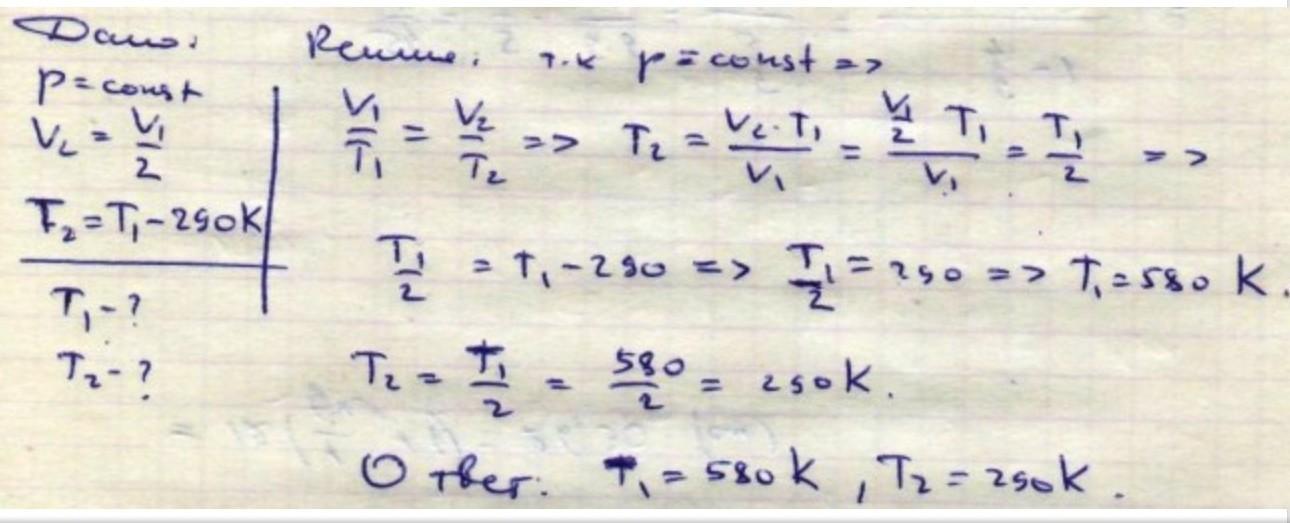 Дано:
p = const
V₂ = V₁/2
T₂ = T₁ - 290K
T₁ - ?
T₂ - ?
Решение: т.к p = const =>
V₁/T₁ = V₂/T₂ => T₂ = V₂·T₁/V₁ = (V₁/2 T₁)/V₁ = T₁/2 =>
T₁/2 = T₁ - 290 => T₁/2 = 290 => T₁ = 580 K.
T₂ = T₁/2 = 580/2 = 290K.
Ответ: T₁ = 580K, T₂ = 290K.